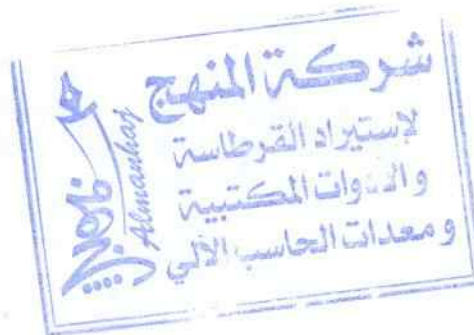 شركة المنهج
لاستيراد القرطاسة
والادوات المكتبية
ومعدات الحاسب الآلي
Almanhaj